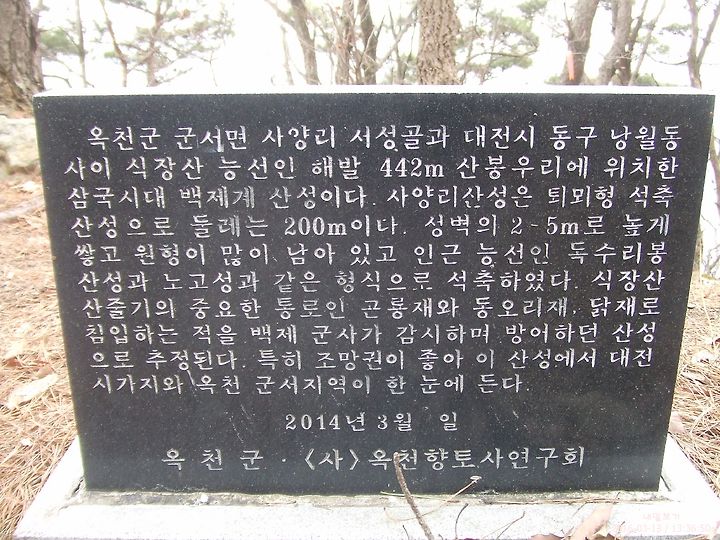 옥천군 군서면 사양리 서성골과 대전시 동구 낭월동
사이 식장산 능선인 해발 442m 산봉우리에 위치한
삼국시대 백제계 산성이다. 사양리산성은 퇴뫼형 석축
산성으로 둘레는 200m이다. 성벽의 2-5m로 높게
쌓고 원형이 많이 남아 있고 인근 능선인 독수리봉
산성과 노고성과 같은 형식으로 석축하였다. 식장산
산줄기의 중요한 통로인 곤룡재와 동오리재, 닭재로
침입하는 적을 백제 군사가 감시하며 방어하던 산성
으로 추정된다. 특히 조망권이 좋아 이 산성에서 대전
시가지와 옥천 군서지역이 한 눈에 든다.
2014년 3월 일
옥천군 · 〈사〉옥천향토사연구회